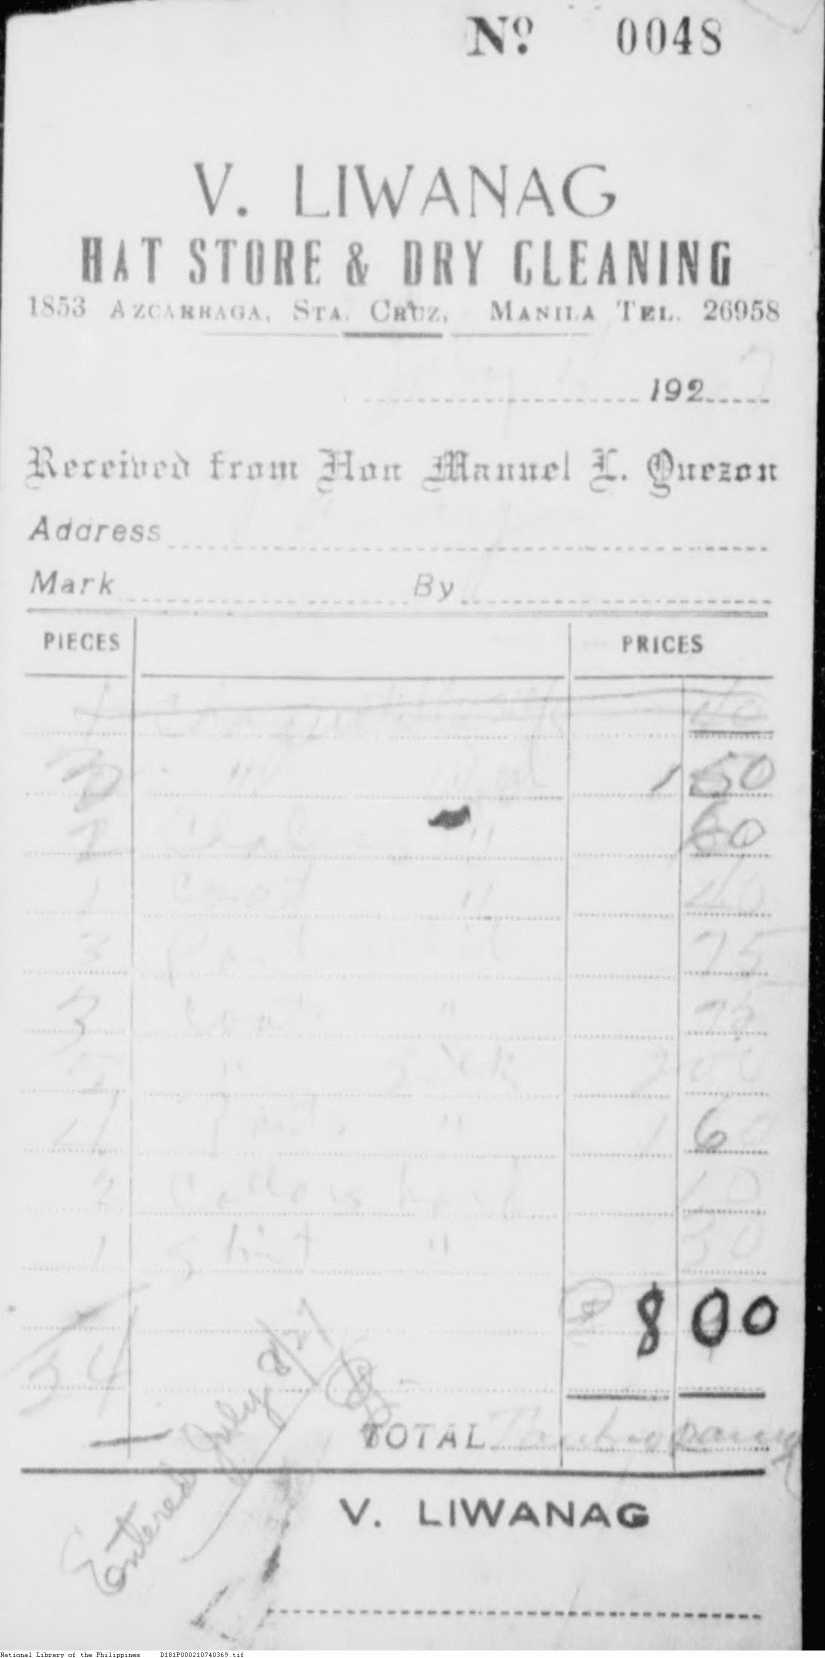 No. 0048
V. LIWANAG
HAT STORE & DRY CLEANING
1853 AZCARRAGA, STA. CRUZ, MANILA TEL. 26958
192
Received from Hon Manuel L. Quezon
Address
Mark By
PIECES PRICES
1 40
3 1 50
2 60
1 Coat " 40
3 75
3 Coat " 75
2 00
4 Pants " 1 60
2 Collars 10
1 Shirt " 30
8 00
34
TOTAL
Entered July 8/27
V. LIWANAG
National Library of the Philippines D181P000210740369.tif